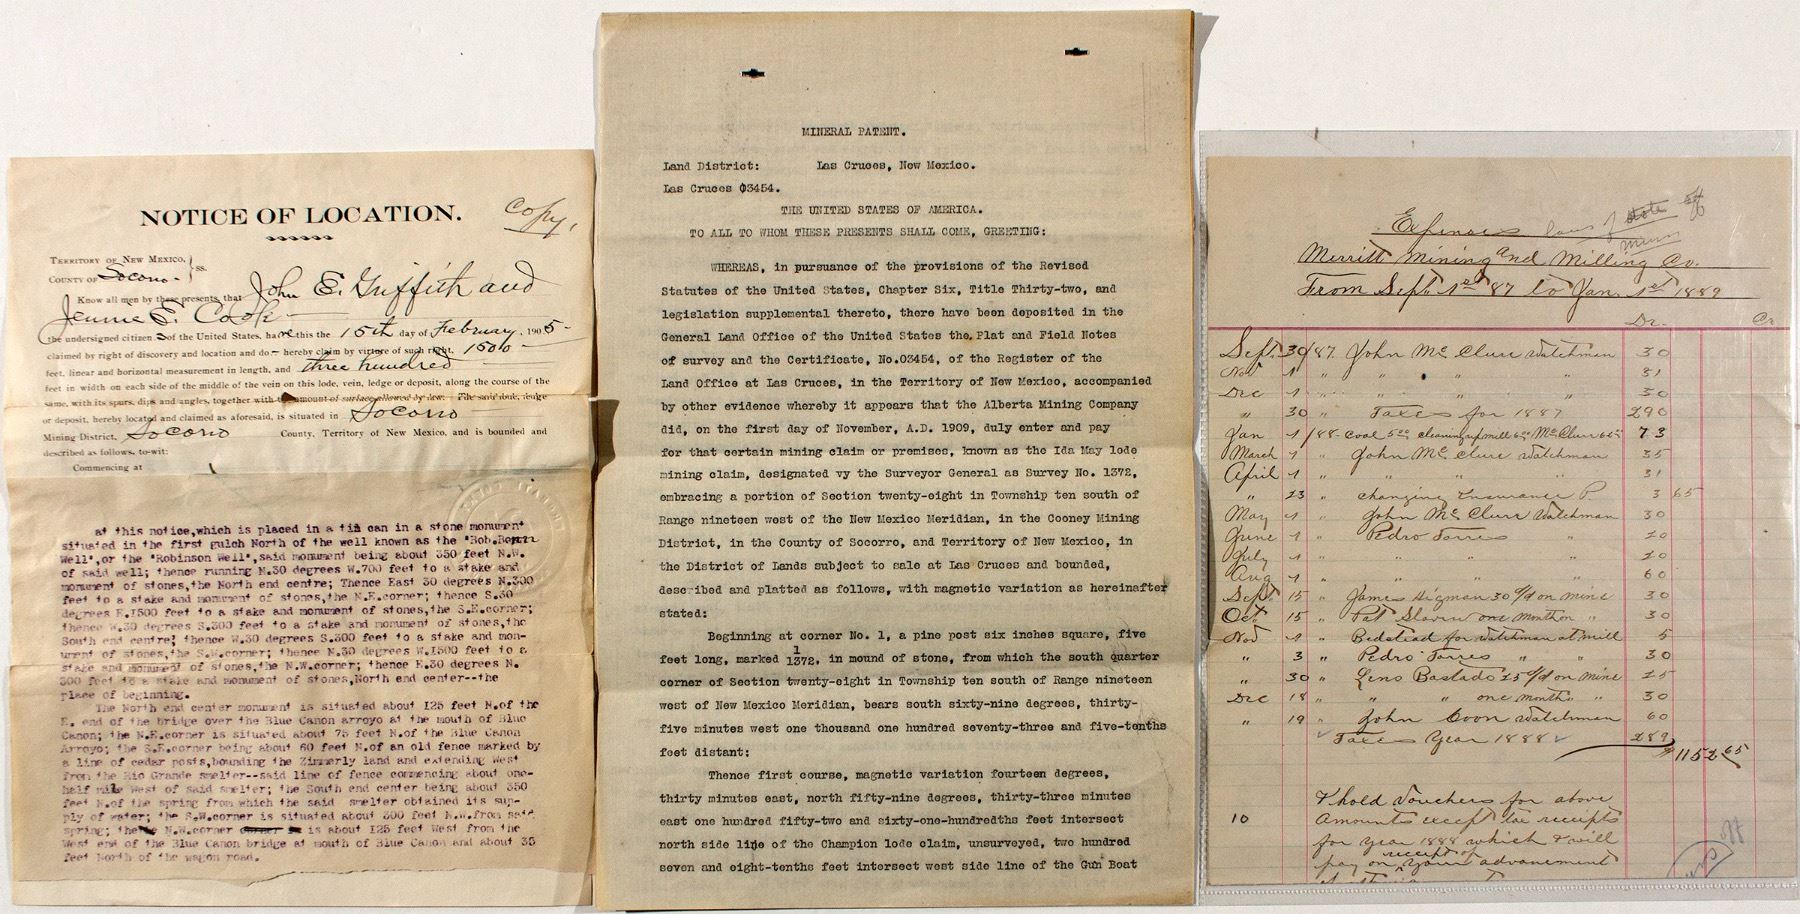 NOTICE OF LOCATION.
Copy,
TERRITORY OF NEW MEXICO, } ss.
COUNTY OF Socorro
Know all men by these presents, that John E. Griffith and
Jennie E. Cook
the undersigned citizens of the United States, have this the 15th day of February, 1905
claimed by right of discovery and location and do hereby claim by virtue of such right, 1500
feet, linear and horizontal measurement in length, and three hundred
feet in width on each side of the middle of the vein on this lode, vein, ledge or deposit, along the course of the
same, with its spurs, dips and angles, together with the amount of surface allowed by law. The said lode, ledge
or deposit, hereby located and claimed as aforesaid, is situated in Socorro
Mining District, Socorro County, Territory of New Mexico, and is bounded and
described as follows, to-wit:
Commencing at
at this notice,which is placed in a tin can in a stone monument
situated in the first gulch North of the well known as the "Bob.
Well", or the "Robinson Well", said monument being about 350 feet N.W.
of said well; thence running N.30 degrees W.700 feet to a stake and
monument of stones,the North end centre; Thence East 30 degrees N.300
feet to a stake and monument of stones,the N.E.corner; thence S.30
degrees E.I500 feet to a stake and monument of stones,the S.E.corner;
thence W.30 degrees S.300 feet to a stake and monument of stones,the
South end centre; thence W.30 degrees S.300 feet to a stake and mon-
ument of stones,the S.W.corner; thence N.30 degrees W.I500 feet to a
stake and monument of stones,the N.W.corner; thence E.30 degrees N.
300 feet to a stake and monument of stones,North end center--the
place of beginning.
The North end center monument is situated about I25 feet N.of the
E. end of the bridge over the Blue Canon arroyo at the mouth of Blue
Canon; the N.E.corner is situated about 75 feet N.of the Blue Canon
Arroyo; the S.E.corner being about 60 feet N.of an old fence marked by
a line of cedar posts,bounding the Zimmerly land and extending West
from the Rio Grande smelter--said line of fence commencing about one-
half mile West of said smelter; the South end center being about 350
feet N.of the spring from which the said smelter obtained its sup-
ply of water; the S.W.corner is situated about 300 feet N.W.from said
spring; the N.W.corner corner is is about I25 feet West from the
West end of the Blue Canon bridge at mouth of Blue Canon and about 35
feet North of the wagon road.
MINERAL PATENT.
Land District: Las Cruces, New Mexico.
Las Cruces 03454.
THE UNITED STATES OF AMERICA.
TO ALL TO WHOM THESE PRESENTS SHALL COME, GREETING:
WHEREAS, in pursuance of the provisions of the Revised
Statutes of the United States, Chapter Six, Title Thirty-two, and
legislation supplemental thereto, there have been deposited in the
General Land Office of the United States the Plat and Field Notes
of survey and the Certificate, No.03454, of the Register of the
Land Office at Las Cruces, in the Territory of New Mexico, accompanied
by other evidence whereby it appears that the Alberta Mining Company
did, on the first day of November, A.D. 1909, duly enter and pay
for that certain mining claim or premises, known as the Ida May lode
mining claim, designated vy the Surveyor General as Survey No. 1372,
embracing a portion of Section twenty-eight in Township ten south of
Range nineteen west of the New Mexico Meridian, in the Cooney Mining
District, in the County of Socorro, and Territory of New Mexico, in
the District of Lands subject to sale at Las Cruces and bounded,
described and platted as follows, with magnetic variation as hereinafter
stated:
Beginning at corner No. 1, a pine post six inches square, five
feet long, marked 1/1372, in mound of stone, from which the south quarter
corner of Section twenty-eight in Township ten south of Range nineteen
west of New Mexico Meridian, bears south sixty-nine degrees, thirty-
five minutes west one thousand one hundred seventy-three and five-tenths
feet distant;
Thence first course, magnetic variation fourteen degrees,
thirty minutes east, north fifty-nine degrees, thirty-three minutes
east one hundred fifty-two and sixty-one-hundredths feet intersect
north side line of the Champion lode claim, unsurveyed, two hundred
seven and eight-tenths feet intersect west side line of the Gun Boat
Expenses
Merritt Mining and Milling Co.
From Sept. 1st 87 to Jan. 1st 1889
Dr. Cr
Sept. 30/87. John Mc Clure Watchman 30
Nov 1 " " " " 31
Dec 1 " " " " 30
" 30 " Taxes for 1887 290
Jan 1/88 Coal 5.00 cleaning up mill 6.00 Mc Clure 65 73
March 1 " John Mc Clure Watchman 35
April 1 " " " " 31
" 23 " Changing Insurance P. 3 65
May 1 " John Mc Clure Watchman 30
June 1 " Pedro Torres " 10
July " " " 10
Aug 1 " " " 60
Sept. 15 " James Higman 30 c/d on mine 30
Oct. 15 " Pat Slavin one month on " 30
Nov 1 " Bedstead for watchman at mill 5
" 3 " Pedro Torres " " 30
" 30 " Leno Bastado 15 c/d on mine 15
Dec 18 " " one month " 30
" 19 " John Coon Watchman 60
Taxes Year 1888 289
1152 65
I hold vouchers for above
10 Amounts except tax receipts
for year 1888 which I will
pay on receipt of your advancement